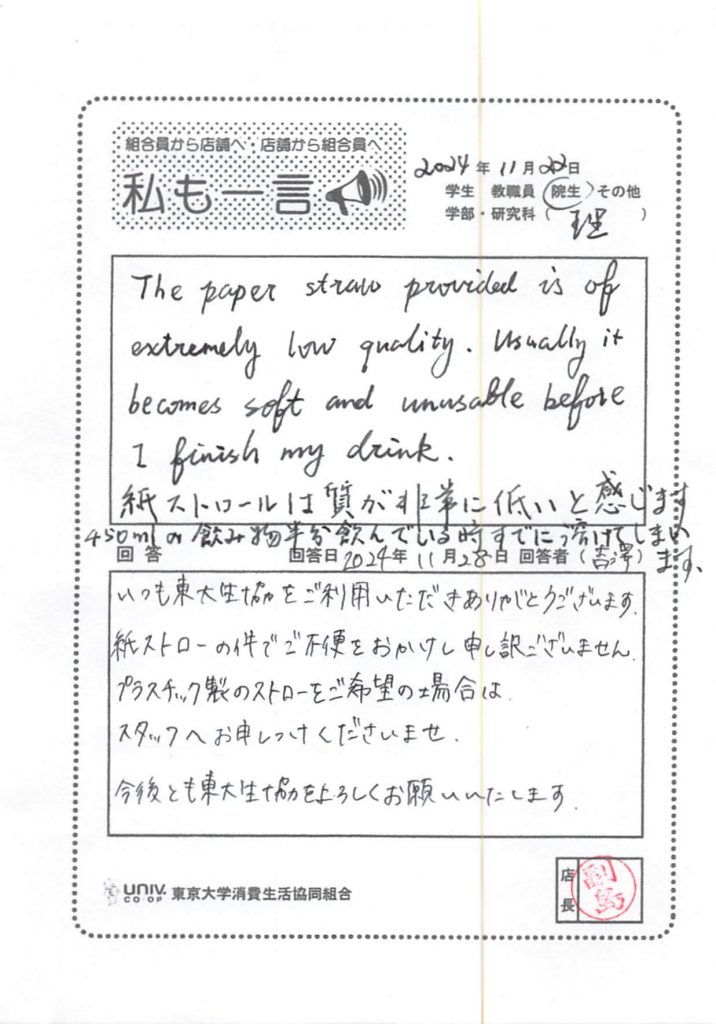 組合員から店舗へ・店舗から組合員へ
私も一言
2024年 11月22日
学生 教職員 院生 その他
学部・研究科（ 理 ）
The paper straw provided is of
extremely low quality. Usually it
becomes soft and unusable before
I finish my drink.
紙ストロールは質が非常に低いと感じます
450mlの飲み物半分飲んでいる時すでに溶けてしまい
ます、
回答 回答日 2024年 11月28日 回答者（吉澤）
いつも東大生協をご利用いただきありがとうございます。
紙ストローの件でご不便をおかけし申し訳ございません。
プラスチック製のストローをご希望の場合は
スタッフへお申しつけくださいませ。
今後とも東大生協をよろしくお願いいたします。
UNIV. CO-OP 東京大学消費生活協同組合
店長 副島